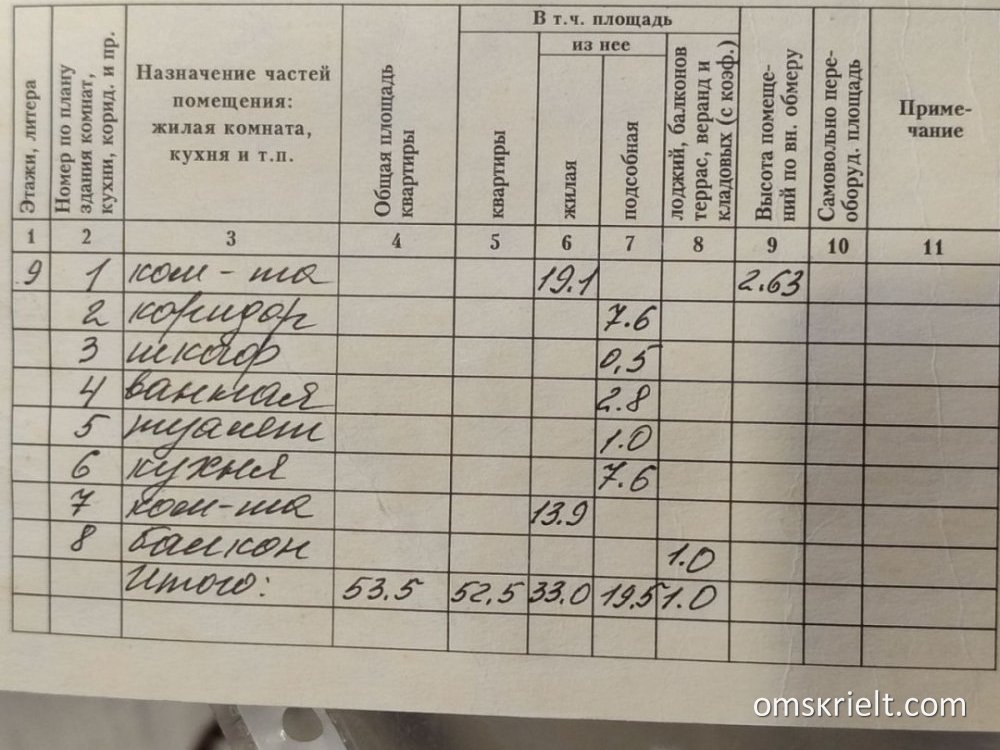 Этажи, литера
Номер по плану здания комнат, кухни, корид. и пр.
Назначение частей
помещения:
жилая комната,
кухня и т.п.
Общая площадь квартиры
В т.ч. площадь
из нее
квартиры
жилая
подсобная
лоджий, балконов террас, веранд и кладовых (с коэф.)
Высота помеще-ний по вн. обмеру
Самовольно пере-оборуд. площадь
Приме-
чание
1 2 3 4 5 6 7 8 9 10 11
9 1 ком-та 19.1 2.63
2 коридор 7.6
3 шкаф 0,5
4 ванная 2.8
5 туалет 1.0
6 кухня 7.6
7 ком-та 13.9
8 балкон 1.0
Итого: 53.5 52.5 33.0 19.5 1.0
omskrielt.com